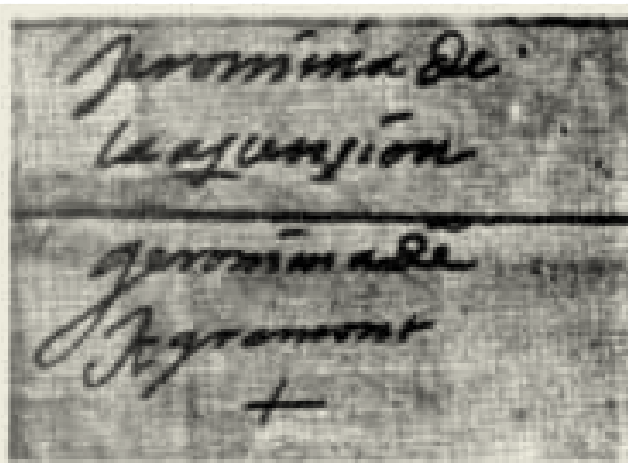 jeromina de
la asunsion
geromina de
Agramont
+